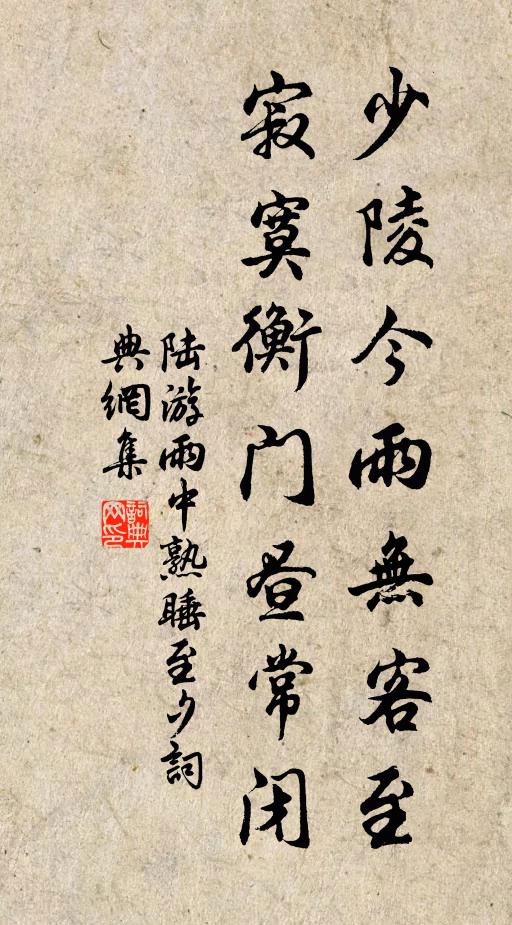 少陵今雨無客至
寂寞衡门昼常闭
陆游雨中熟睡至夕詞
典網集
詞典
网印